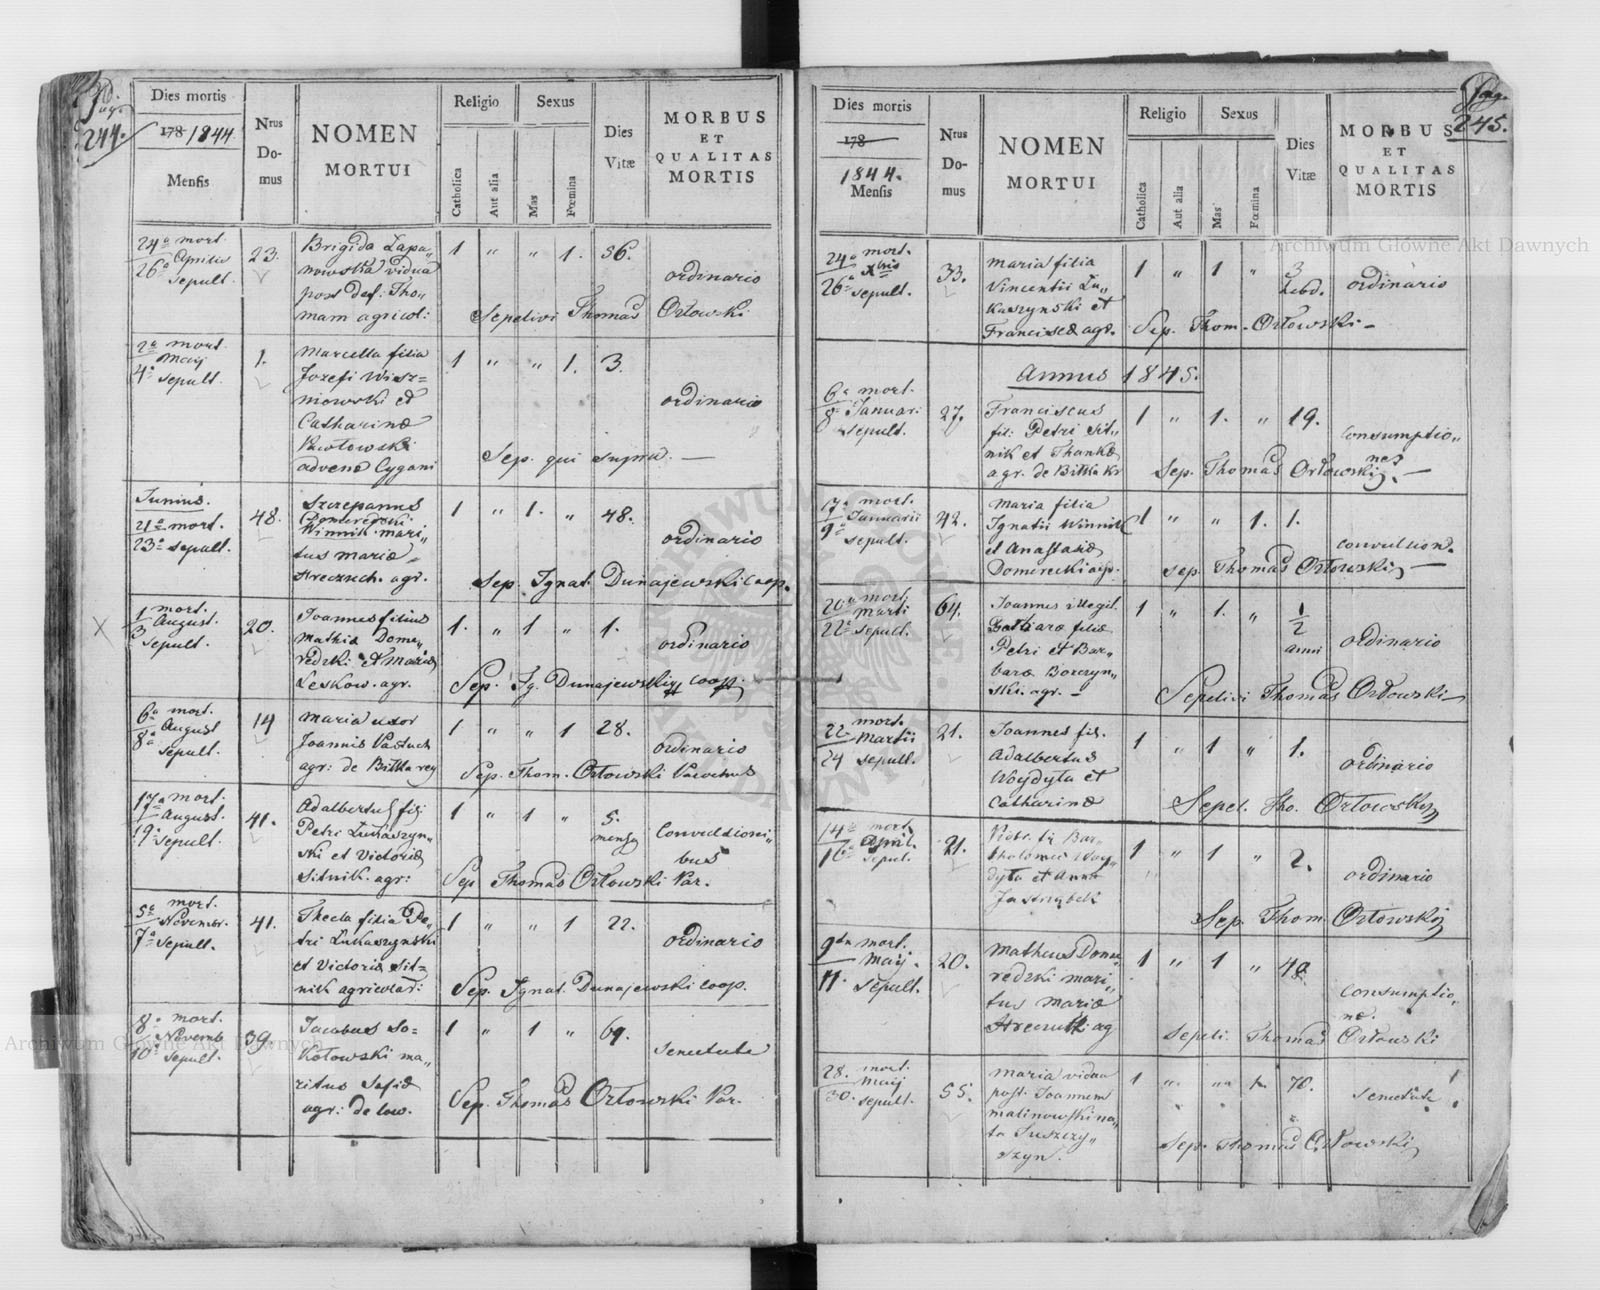 Pag.
244.
Dies mortis
178 1844
Mensis
Nrus
Do-
mus
NOMEN
MORTUI
Religio
Sexus
Catholica
Aut alia
Mas
Fœmina
Dies
Vitæ
MORBUS
ET
QUALITAS
MORTIS
24a mort.
Aprilis
26a sepult.
23.
Brigida Lapa„
nowska vidua
post def: Tho„
mam agricol:
1 „ „ 1. 56.
ordinario
Sepelivi Thomas Orłowski
2a mort.
Maij
4a sepult.
1.
Marcella filia
Jozefi Wisz=
niowski et
Catharinæ
Pawłowski
advenæ Cygani
1 „ „ 1. 3.
ordinario
Sep. qui supra. —
Junius.
21a mort.
23a sepult.
48.
Szczepanus
Domeredzki
Winnik mari„
tus Mariæ
Hreczuch. agr.
1 „ 1. „ 48.
ordinario
Sep. Ignat. Dunajewski coop.
1 mort.
August.
3 sepult.
20.
Joannes filius
Mathiæ Dome„
redzki et Mariæ
Leskow. agr.
1. „ 1 „ 1.
ordinario
Sep. Ig. Dunajewski coop.
6a mort.
August
8a sepult.
14
Maria uxor
Joannis Pastuch
agr: de Bitka rey
1 „ „ 1 28.
ordinario
Sep. Thom. Orłowski Parochus
17a mort.
August.
19a sepult.
41.
Adalbertus fil:
Petri Lukaszyn„
ski et Victoriæ
Sitnik. agr:
1 „ 1 „ 5.
mensy
Convulsioni„
bus
Sep Thomas Orłowski Par.
5a mort.
Novembr.
7a sepult.
41.
Thecla filia Pe„
tri Lukaszynski
et Victoriæ Sit=
nik agricolar:
1 „ „ 1 22.
ordinario
Sep. Ignat. Dunajewski coop.
8a mort.
Novemb
10a sepult.
39.
Jacobus So=
kołowski ma„
ritus Sofiæ
agr: de low.
1 „ 1 „ 69.
senectute
Sep. Thomas Orłowski Par.
Pag.
245.
Dies mortis
178
1844.
Mensis
Nrus
Do-
mus
NOMEN
MORTUI
Religio
Sexus
Catholica
Aut alia
Mas
Fœmina
Dies
Vitæ
MORBUS
ET
QUALITAS
MORTIS
24a mort.
Xbris
26a sepult.
33.
Maria filia
Vincentii Lu„
kaszynski et
Franciscæ agr.
1 „ 1 „ 3
hebd.
ordinario
Sep. Thom. Orłowski —
Annus 1845.
6a mort.
8a Januar:
sepult.
27.
Franciscus
fil: Petri Sit„
nik et Thankæ
agr. de Bitka Kr
1 „ 1. „ 19.
Consumptio„
nes
Sep. Thomas Orłowski. —
7a mort.
Januarii
9a sepult.
42.
Maria filia
Ignatii Winnik
et Anastasiæ
Domerecki agr.
1 „ „ 1. 1.
convulsion.
sep Thomas Orłowski —
20a mort
Marti
22a sepult.
64.
Joannes illegit.
Barbaræ filiæ
Petri et Bar„
baræ Borczyn„
ski. agr. —
1 „ 1. „ 1/2
anni
ordinario
Sepelivi Thomas Orłowski
22 mort.
Martii
24 sepult.
21.
Joannes fil.
Adalbertus
Woydyla et
Catharinæ
1 „ 1 „ 1.
ordinario
Sepel. Tho. Orłowski
14a mort.
April.
16a sepul.
21.
Victr. fil Bar„
tholomei Woy„
dyla et Annæ
Jastrzębek
1 „ 1 „ 2.
ordinario
Sep. Thom. Orłowski
9ta mort.
Maij.
11. sepult.
20.
Matheus Dome„
redzki mari„
tus Mariæ
Hreczuk: ag
1 „ 1 „ 48
Consumptio„
ne.
Sepeli. Thomas Orłowski
28. mort.
Maij
30. sepult.
55.
Maria vidua
post. Joannem
Malinowski na„
ta Suszczy„
szyn.
1 „ „ 1. 70.
senectute
Sep. Thomas Orłowski
Archiwum Główne Akt Dawnych
Archiwum Główne Akt Dawnych